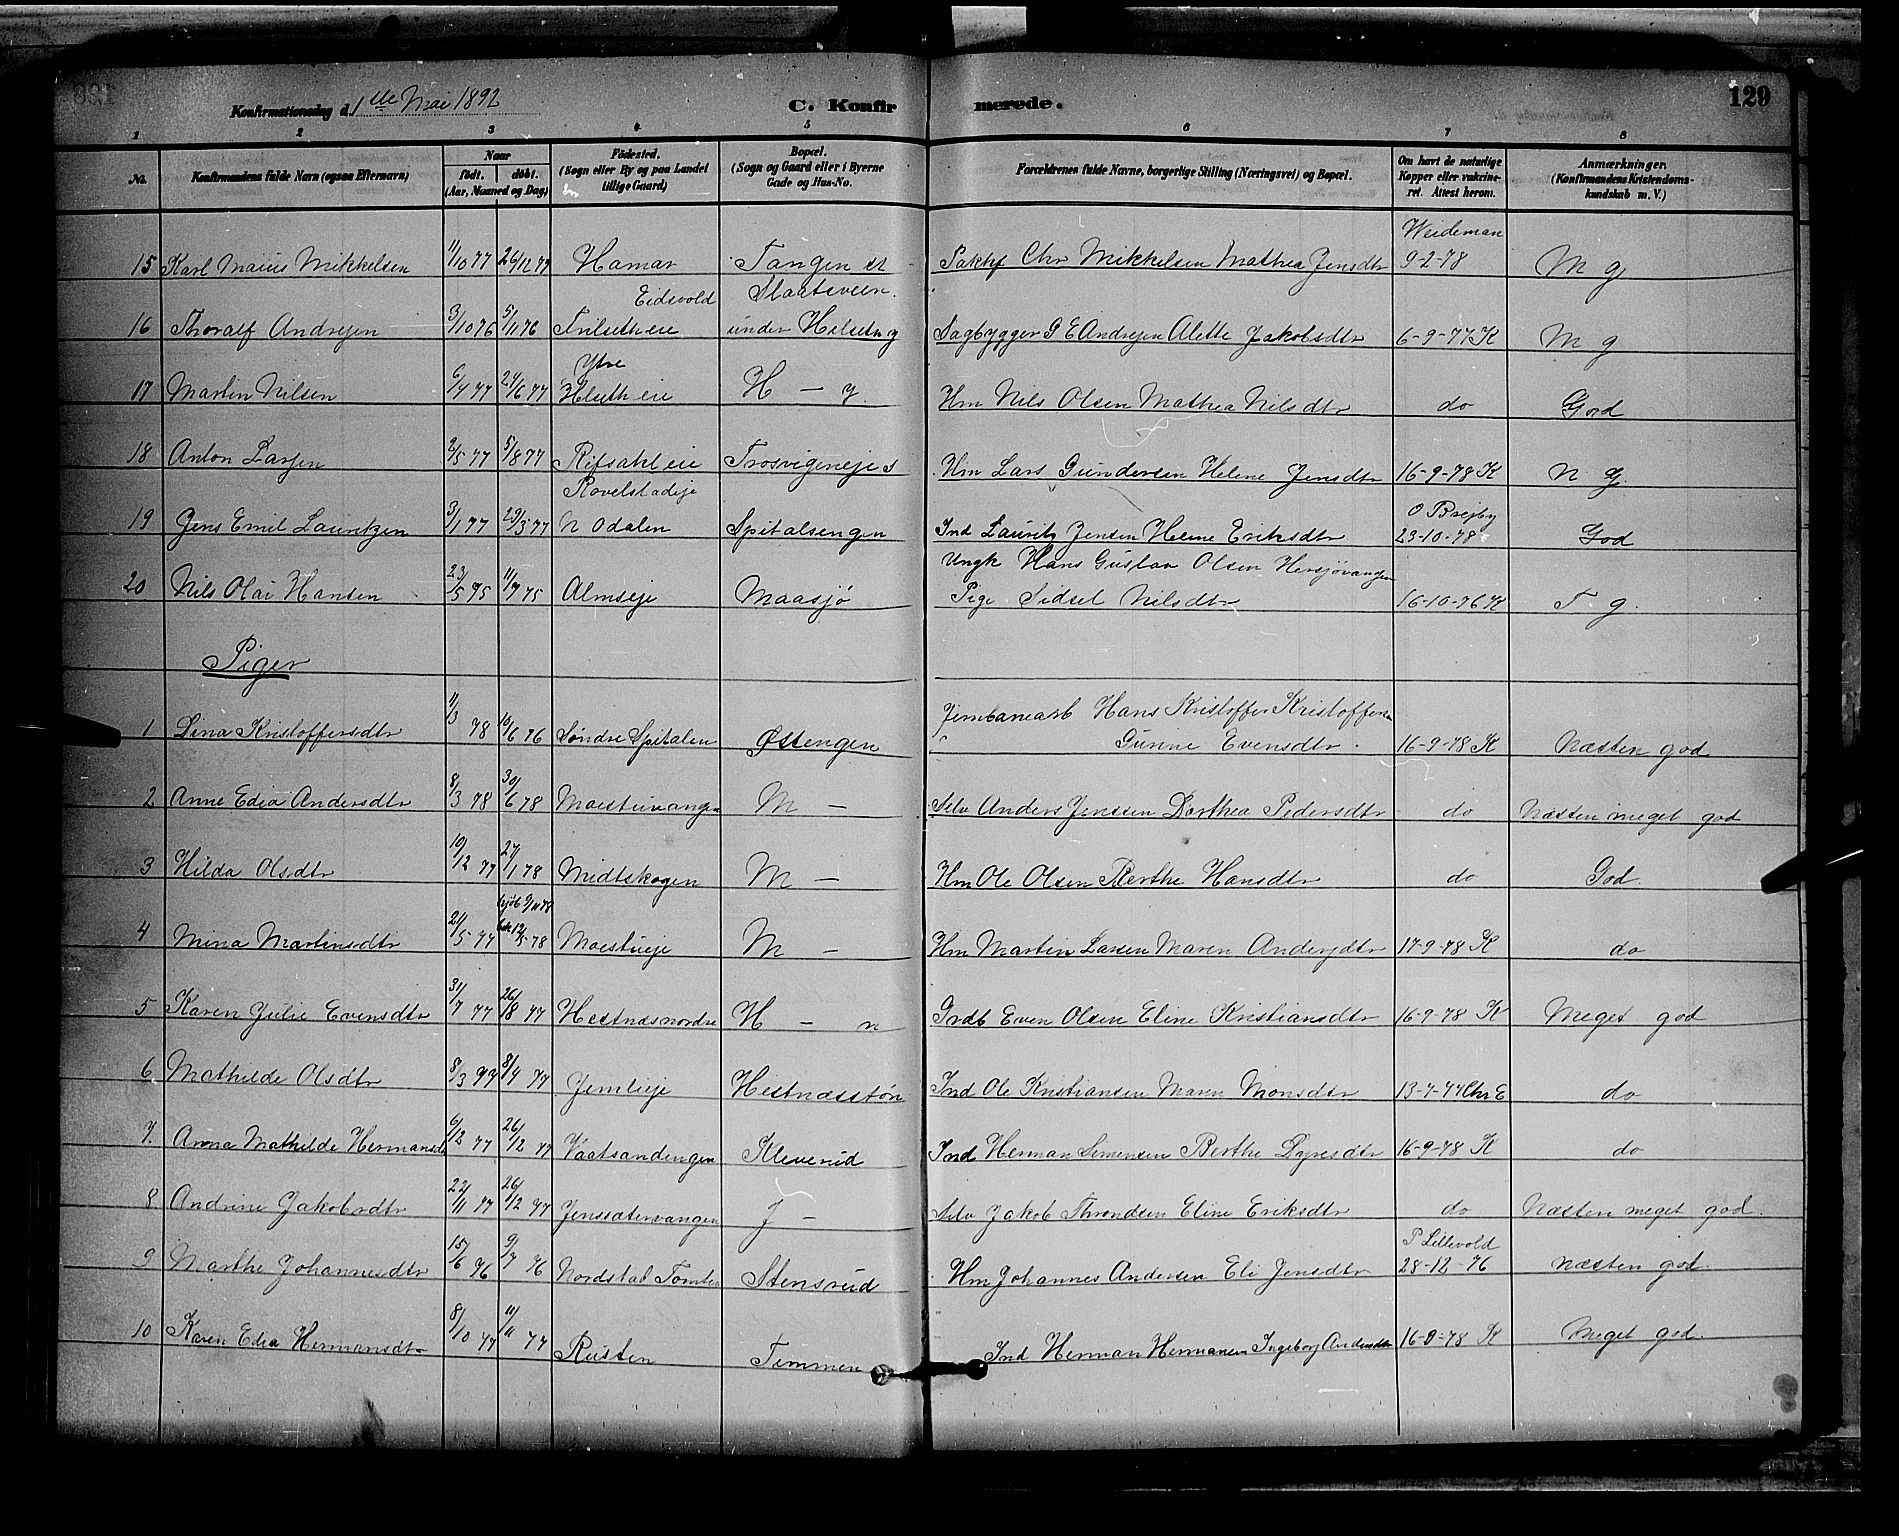 Konfirmationsdag d. 1ste Mai 1892 C. Konfirmerede. 129
1 2 3 4 5 6 7 8
No. Konfirmandens fulde Navn (ogsaa Efternavn) Naar födt. döbt. (Aar, Maaned og Dag) Födested. (Sogn eller By og paa Landet tillige Gaard) Bopæl. (Sogn og Gaard eller i Byerne Gade og Hus-No. Forældrenes fulde Navne, borgerlige Stilling (Næringsvei) og Bopæl. Om havt de naturlige Kopper eller vakcineret. Attest herom. Anmærkninger. (Konfirmandens Kristendomskundskab m. V.)
15 Karl Marius Mikkelsen 11/10 77 26/12 77 Hamar Tangen st Chr Mikkelsen Mathea Jensdtr Weideman 9-2-78 M g
16 Thoralf Andresen 3/10 76 5/11 76 Eidsvold Trilseth eie Staatsveen under Helseth y Sagbygger G E Andresen Alette Jakobsdtr 6-9-77 K M g
17 Martin Nilsen 6/4 77 24/6 77 Ytre Hlseth eie H - y Hm Nils Olsen Mathea Nilsdtr do God
18 Anton Larsen 2/5 77 5/8 77 Rifsahl eie Trosvigeneje s Hm Lars Gundersen Helene Jensdtr 16-9-78 K N G
19 Jens Emil Lauritzen 3/1 77 29/3 77 Rovelstadeje N Odalen Spitalsengen Ind Lauritz Jensen Helene Eriksdtr O Brejby 23-10-78 God
20 Nils Olai Hansen 23/5 75 11/7 75 Almseje Maasjö Ungk Hans Gustav Olsen Hersjövangen
Pige Sidsel Nilsdtr 16-10-76 K T g.
Piger
1 Lina Kristoffersdtr 11/3 78 10/6 76 Söndre Spitalen Østengen Jernbanearb Hans Kristoffer Kristoffersen
Gurine Evensdtr 16-9-78 K Næsten god
2 Anne Edea Andersdtr 8/3 78 30/6 78 Moestuevangen M - Selv Anders Jenssen Dorthea Pedersdtr do Næsten meget god
3 Hilda Olsdtr 10/12 77 27/1 78 Midtskogen M - Hm Ole Olsen Berthe Hansdtr do God
4 Mina Martinsdtr 21/5 77 hjdb 9/11 78 12/5 78 Moestueje M - Hm Martin Larsen Maren Andersdtr 17-9-78 K do
5 Karen Julie Evensdtr 31/7 77 26/8 77 Hestnæs nordre H - n Grdb Even Olsen Eline Kristiansdtr 16-9-78 K Meget god
6 Mathilde Olsdtr 8/3 77 8/4 77 Jemlieje Hestnæsstön Ind Ole Kristiansen Maren Monsdtr 13-7-77 Chr E do
7. Anna Mathilde Hermansdtr 6/12 77 26/12 77 Vaatsandengen Kleverud Ind Herman Simensen Berthe Dyresdtr 16-9-78 K do
8 Andrine Jakobsdtr 22/11 77 26/12 77 Jenssætervangen J - Selv Jakob Throndsen Eline Eriksdtr do Næsten meget god.
9 Marthe Johannesdtr 15/6 76 9/7 76 Nordstad Tomten Stensrud Hm Johannes Andersen Eli Jensdtr P Lillevold 28-12-76 Næsten god.
10 Karen Edea Hermansdtr 8/10 77 11/11 77 Rusten Temmen Ind Herman Hermansen Ingeborg Andersdtr 16-9-78 K Meget god.